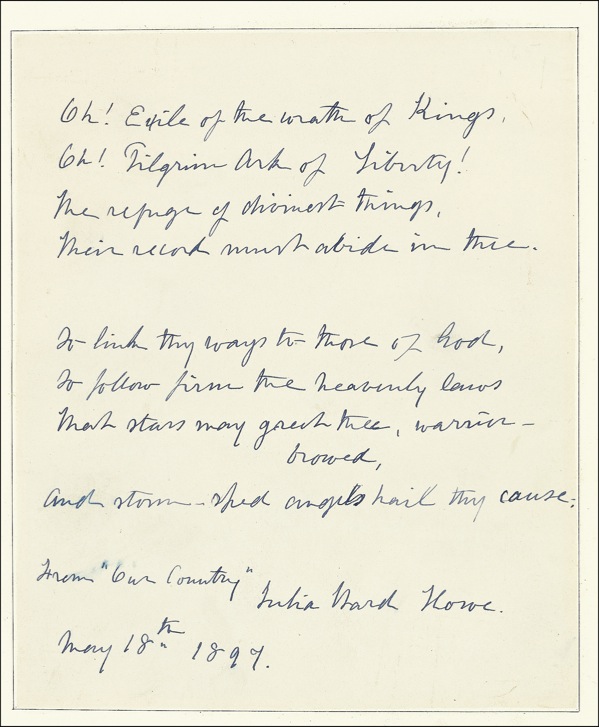 Oh! Exile of the wrath of Kings,
Oh! Pilgrim Ark of Liberty!
The refuge of divinest things,
Their record must abide in thee.
So link thy ways to those of God,
So follow firm the heavenly laws
That stars may greet thee, warrior-
browed,
And storm-sped angels hail thy cause.
From "Our Country"
Julia Ward Howe.
May 18th 1897.